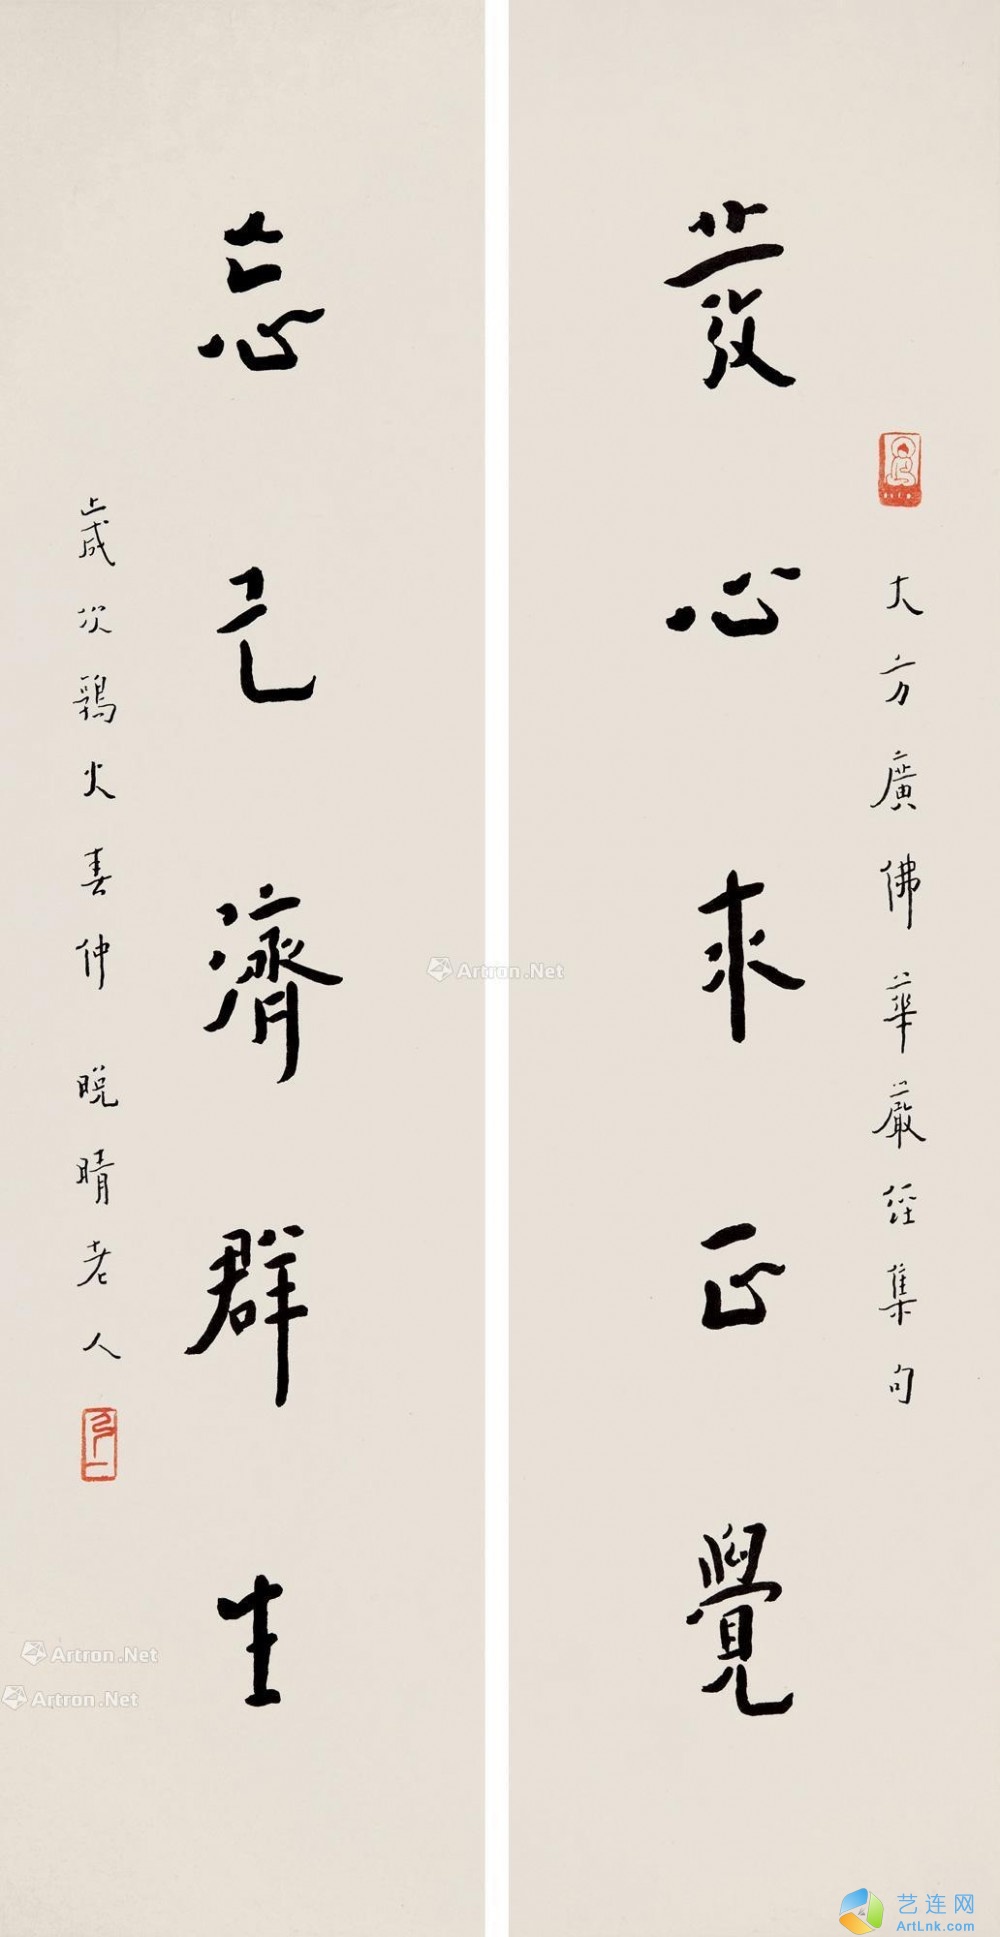 大方廣佛華嚴經集句
發心求正覺
忘己濟群生
歲次鶉火春仲 晚晴老人
Artron.Net
Artron.Net
Artron.Net
艺连网
ArtLnk.com